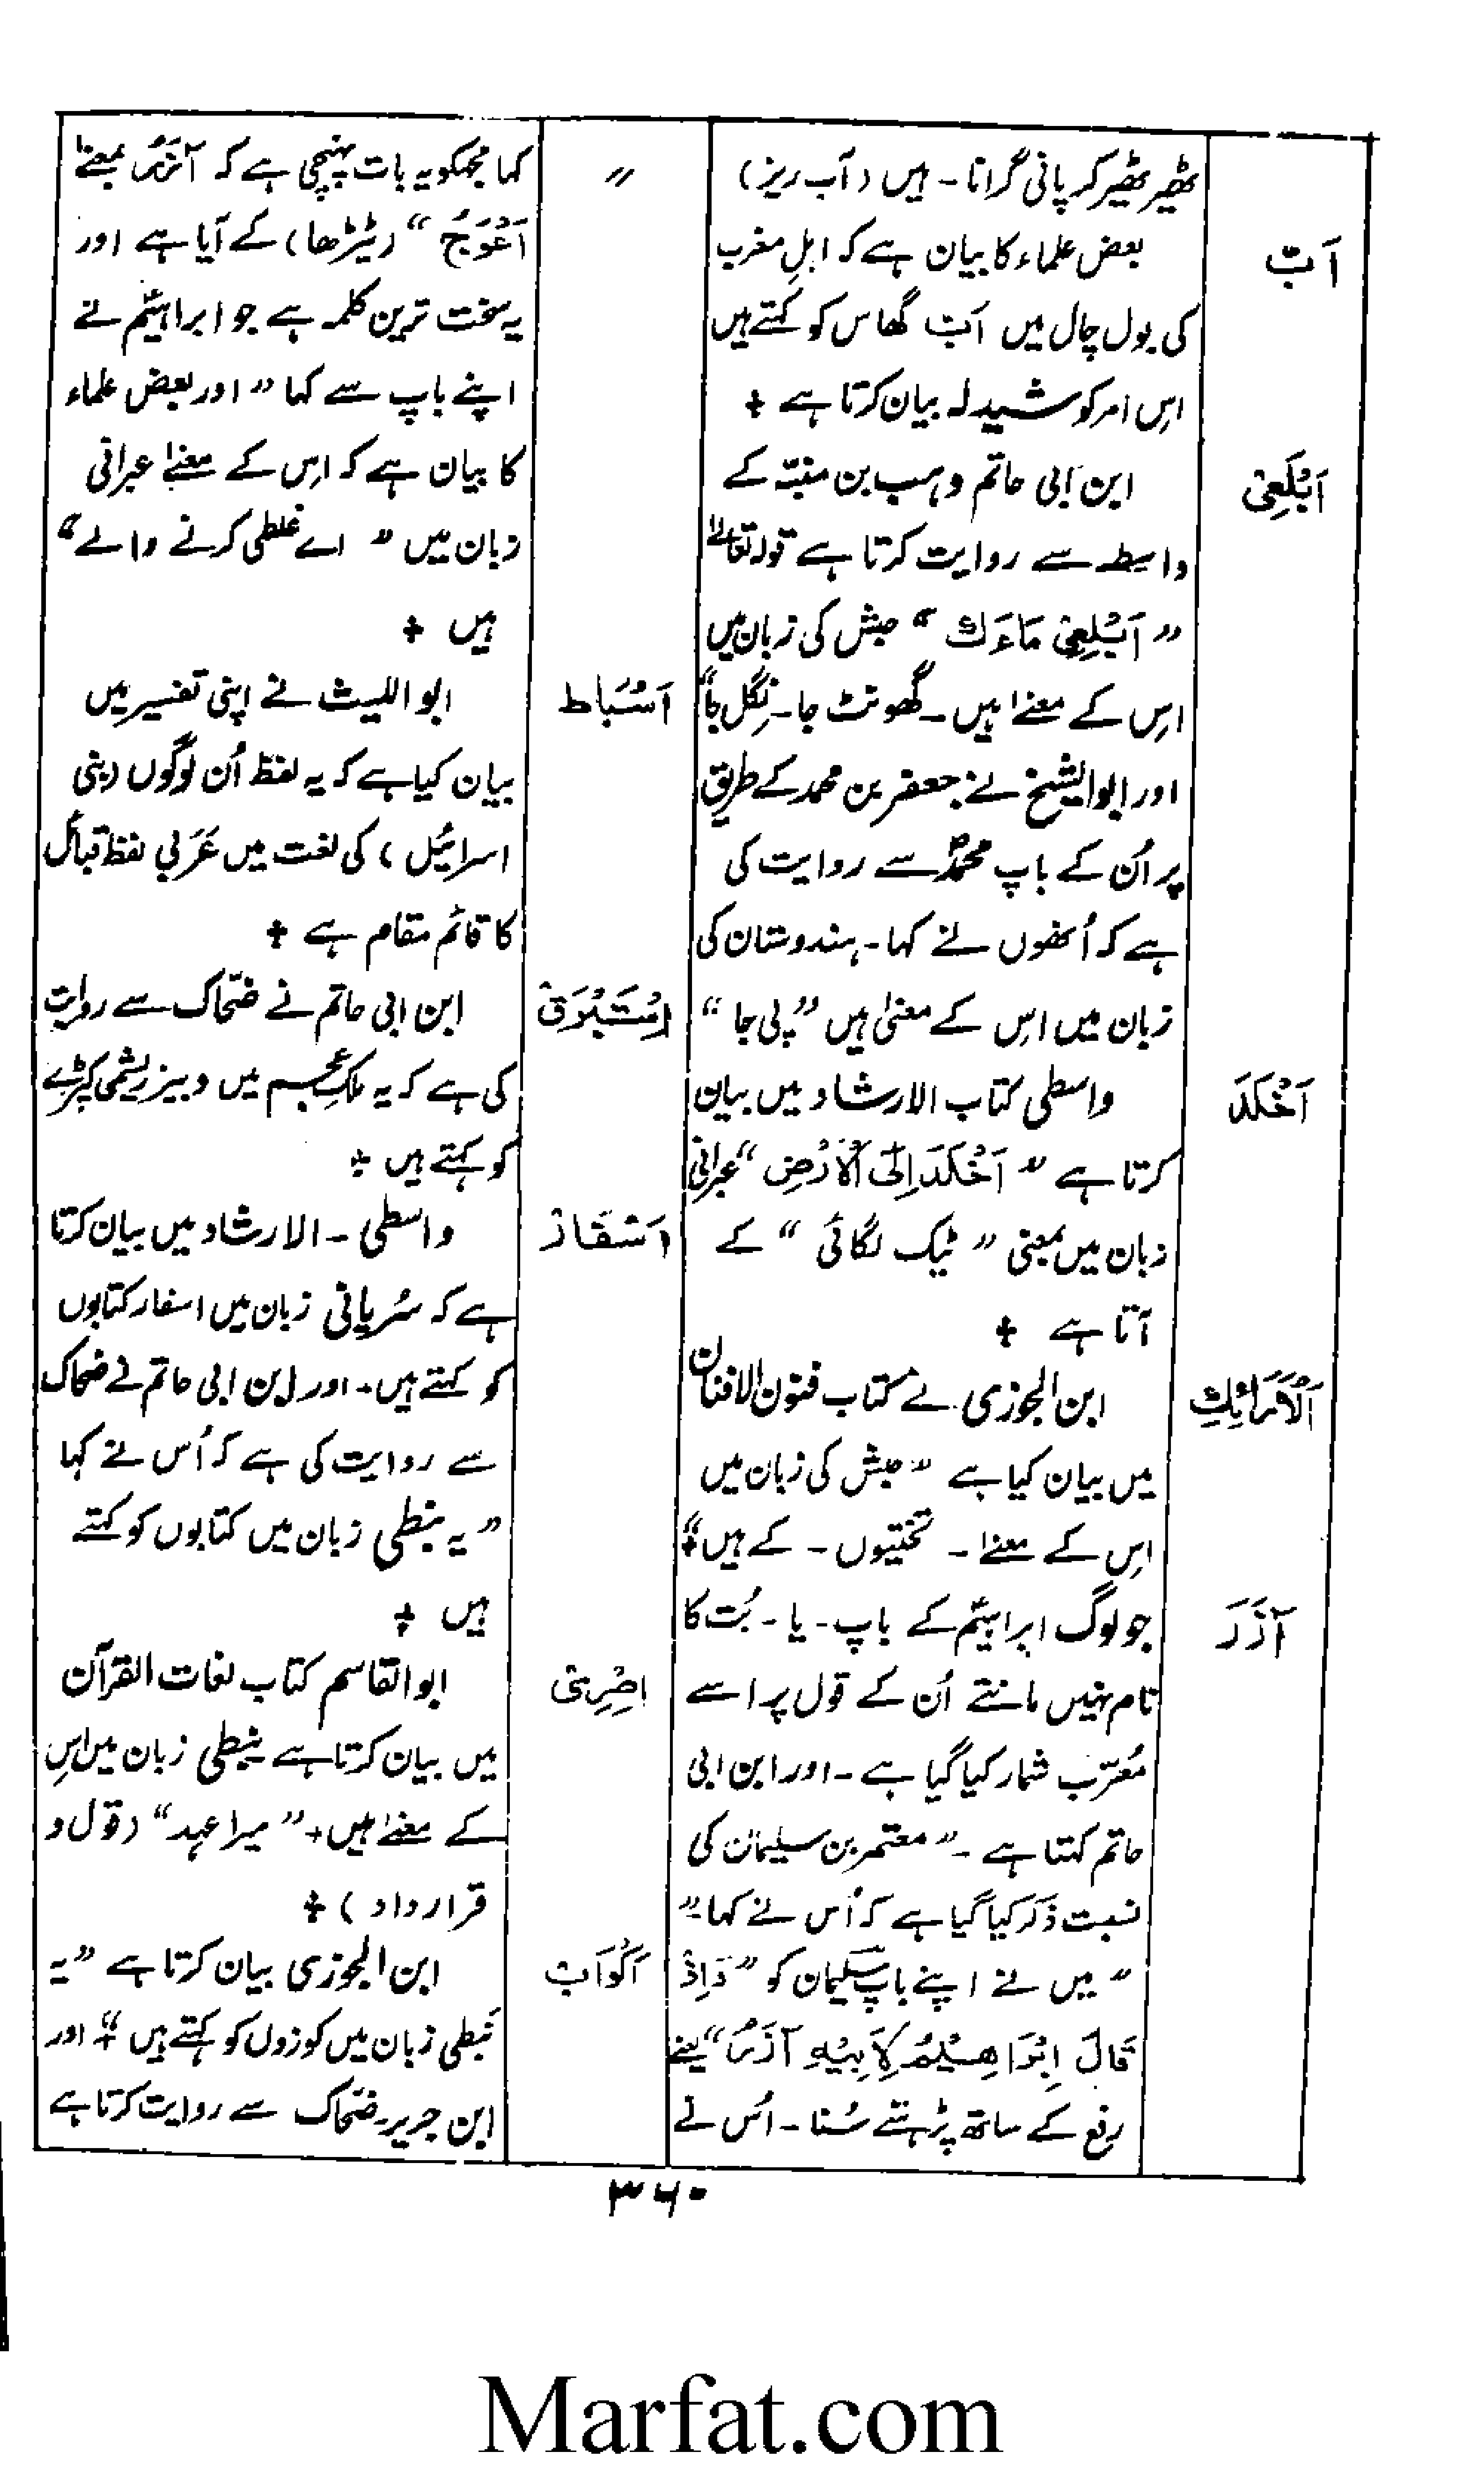 ٹھیر ٹھیر کر پانی گرانا۔ ہیں (آب ریز)
اَبّ
بعض علماء کا بیان ہے کہ اہلِ مغرب
کی بول چال میں اَبّ گھاس کو کہتے ہیں
اِس امر کو شیدلہ بیان کرتا ہے ÷
اَبْلَعِیْ
ابن ابی حاتم وہب بن منبّہ کے
واسطہ سے روایت کرتا ہے قولہ تعالےٰ
” اَبْلِعِیْ مَاءَكِ “ حبش کی زبان میں
اِس کے معنےٰ ہیں۔ گھونٹ جا۔ نِگل جا“
اور ابوالشیخ نے جعفر بن محمد کے طریق
پر اُن کے باپ محمدؐ سے روایت کی
ہے کہ اُنھوں نے کہا۔ ہندوستان کی
زبان میں اِس کے معنیٰ ہیں ”پی جا“
اَخْلَدَ
واسطی کتاب الارشاد میں بیان
کرتا ہے ” اَخْلَدَ اِلَی الْاَرْضِ “ عبرانی
زبان میں بمعنی ” ٹیک لگائی “ کے
آتا ہے ÷
اَلْاَرَائِكِ
ابن الجوزی نے کتاب فنون الافنان
میں بیان کیا ہے ” حبش کی زبان میں
اِس کے معنےٰ ۔ تختیوں ۔ کے ہیں“÷
آذَرَ
جو لوگ ابراہیمؑ کے باپ ۔ یا ۔ بُت کا
نام نہیں مانتے اُن کے قول پر اسے
مُعرّب شمار کیا گیا ہے ۔ اور ابن ابی
حاتم کہتا ہے ۔ ” معتمر بن سلیمان کی
نسبت ذکر کیا گیا ہے کہ اُس نے کہا۔“
” میں نے اپنے باپ سلیمان کو ” وَاِذْ
قَالَ اِبْرَاهِيْمُ لِاَبِيْهِ آذَرُ “ یعنے
رفع کے ساتھ پڑھتے سُنا ۔ اُس نے
”
کہا مجھکو یہ بات پہنچی ہے کہ آزَرُ بمعنےٰ
اَعْوَجُ “ (ٹیڑھا) کے آیا ہے اور
یہ سخت ترین کلمہ ہے جو ابراہیمؑ نے
اپنے باپ سے کہا ” اور بعض علماء
کا بیان ہے کہ اِس کے معنےٰ عبرانی
زبان میں ” اے غلطی کرنے والے “
ہیں ÷
اَسْبَاط
ابواللیث نے اپنی تفسیر میں
بیان کیا ہے کہ یہ لفظ اُن لوگوں (بنی
اسرائیل) کی لغت میں عَرَبی لفظ قبائل
کا قائم مقام ہے ÷
اِسْتَبْرَقْ
ابن ابی حاتم نے ضحّاک سے روایت
کی ہے کہ یہ ملکِ عجم میں دبیز ریشمی کپڑے
کو کہتے ہیں ÷
اَسْفَارْ
واسطی ۔ الارشاد میں بیان کرتا
ہے کہ سُریانی زبان میں اسفار کتابوں
کو کہتے ہیں۔ اور ابن ابی حاتم نے ضحاک
سے روایت کی ہے کہ اُس نے کہا
” یہ نبطی زبان میں کتابوں کو کہتے
ہیں ÷
اِصْرِیْ
ابوالقاسم کتاب لغات القرآن
میں بیان کرتا ہے نبطی زبان میں اِس
کے معنےٰ ہیں ۔ ” میرا عہد “ (قول و
قرارداد) ÷
اَکْوَاب
ابن الجوزی بیان کرتا ہے ” یہ
نَبطی زبان میں کوزوں کو کہتے ہیں “÷ اور
ابن جریر ضحّاک سے روایت کرتا ہے
۳۶۰
Marfat.com